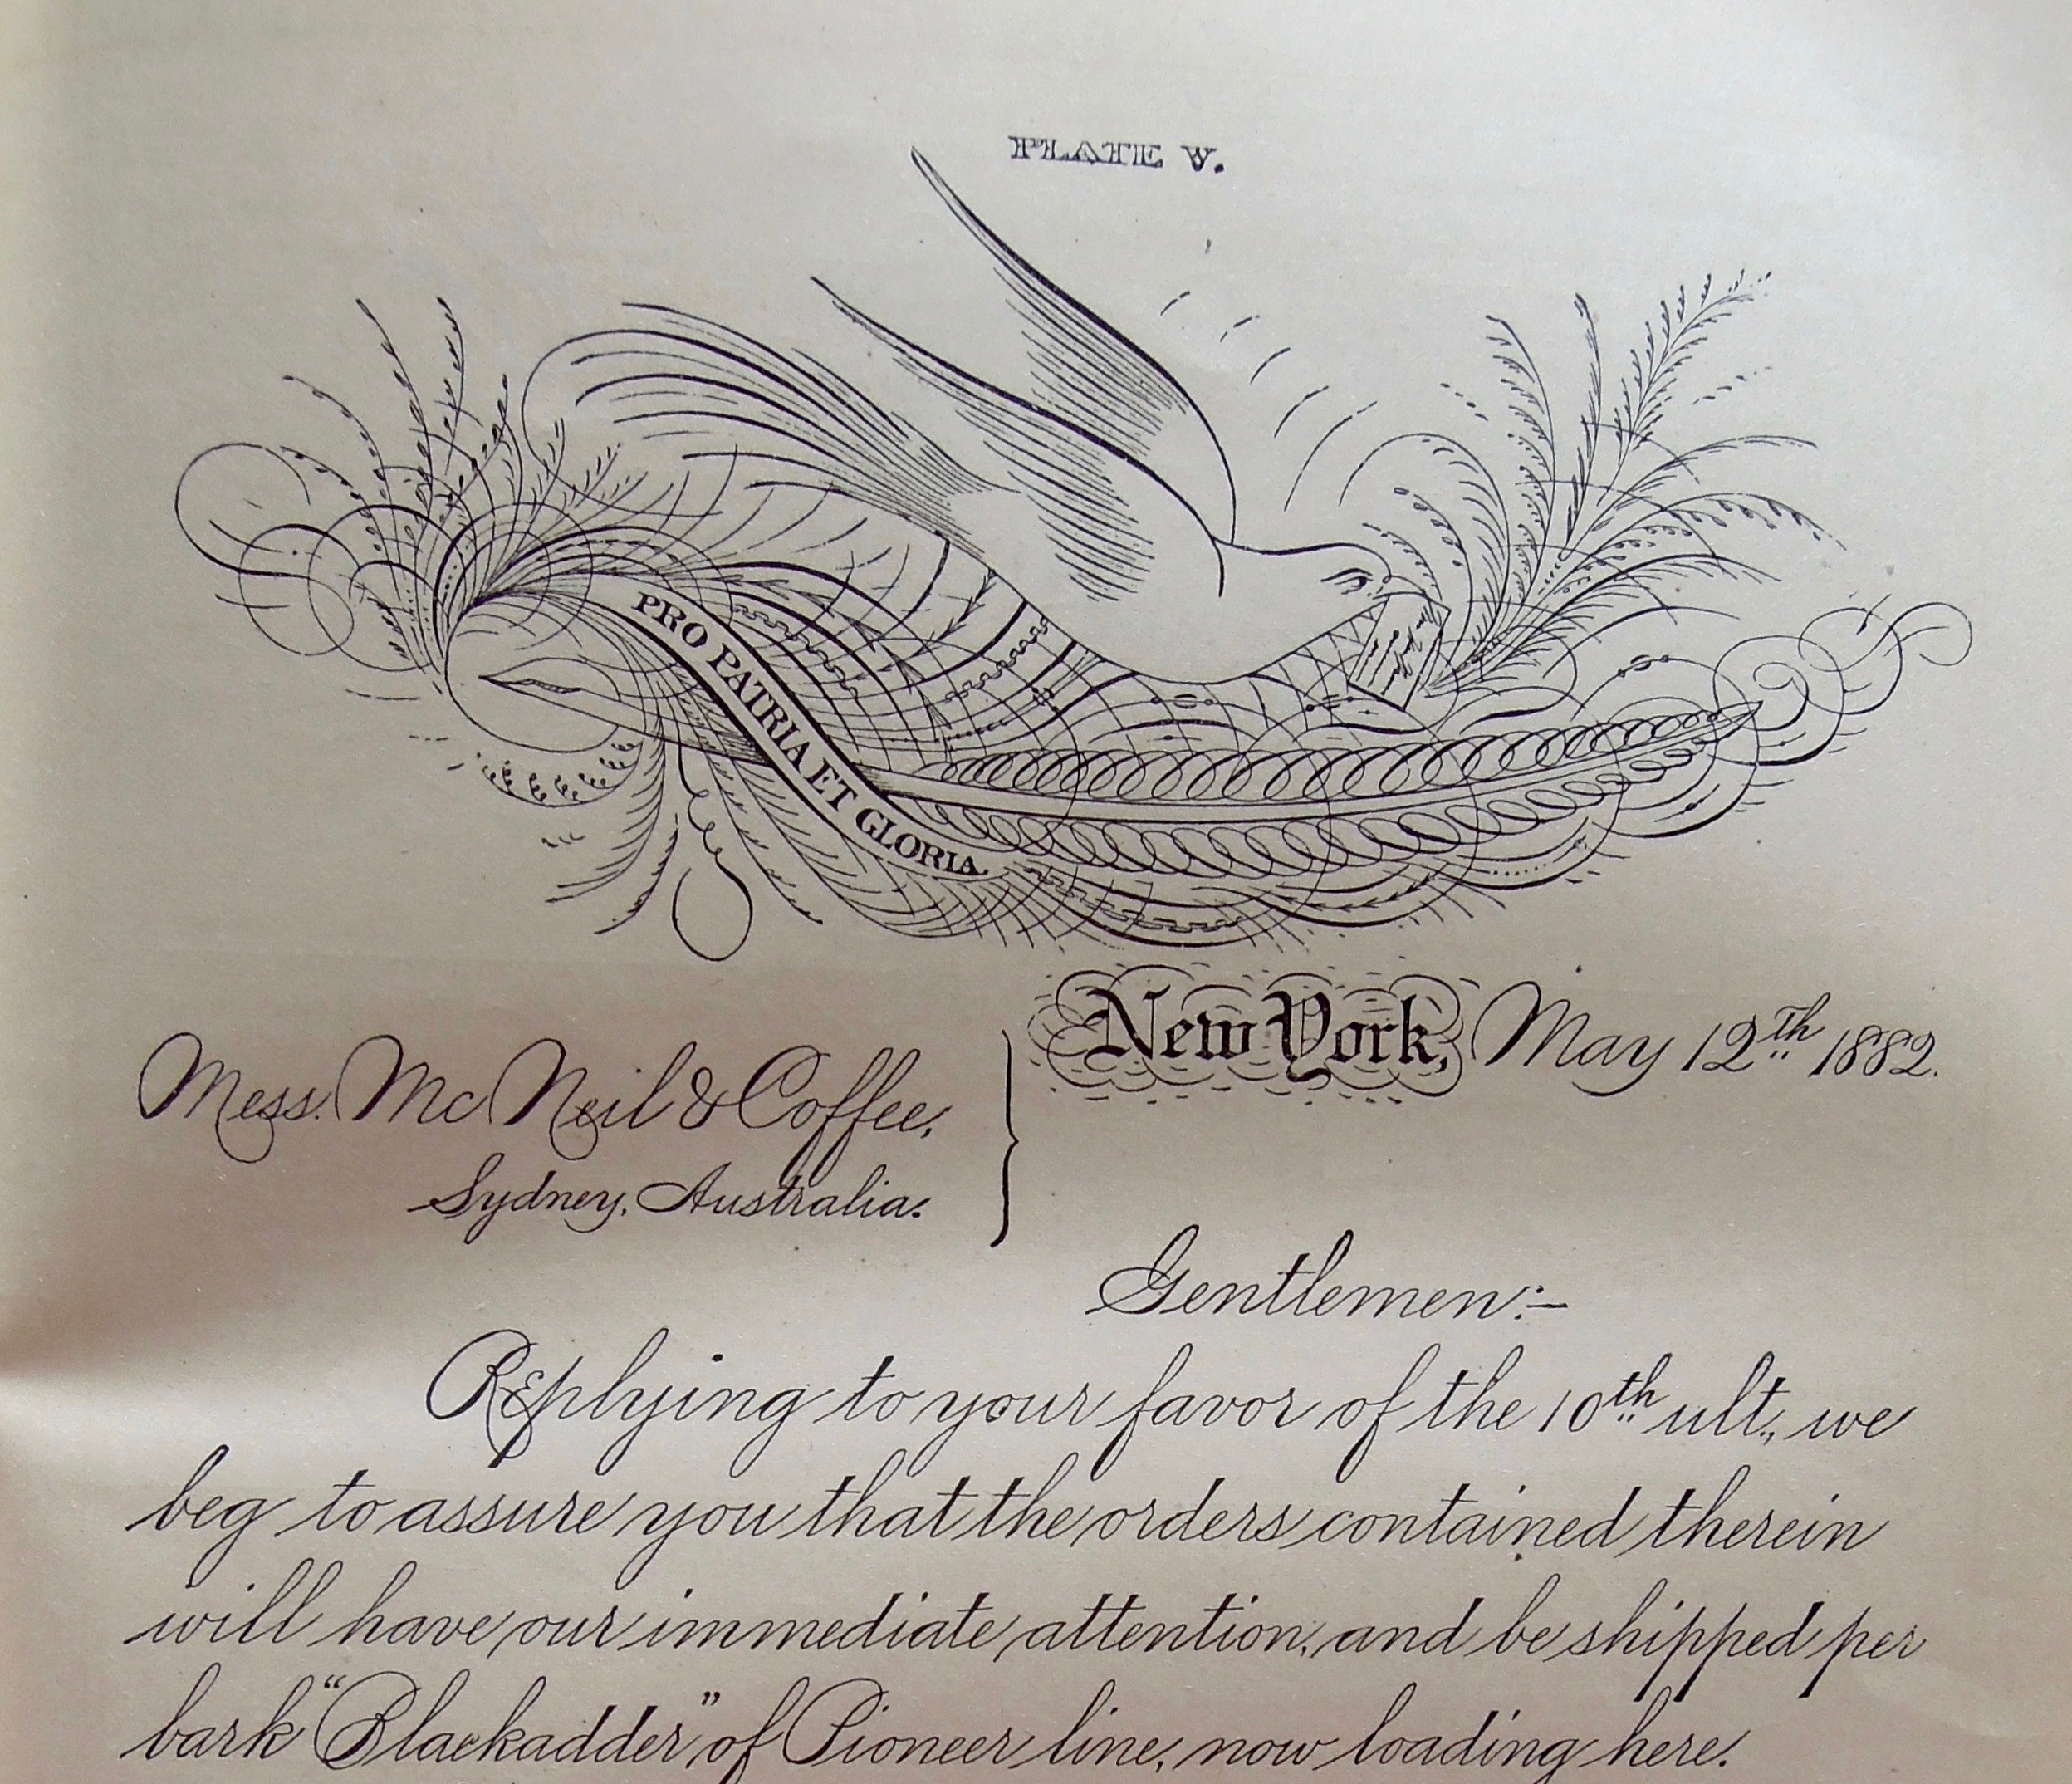 PLATE V.
PRO PATRIA ET GLORIA.
New York, May 12th 1882.
Mess. McNeil & Coffee,
Sydney, Australia.
Gentlemen:-
Replying to your favor of the 10th ult., we
beg to assure you that the orders contained therein
will have our immediate attention, and be shipped per
bark "Blackadder" of Pioneer line, now loading here.